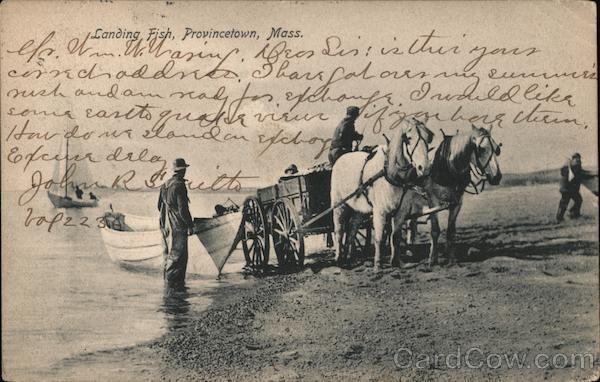 Landing Fish, Provincetown, Mass.
Mr. Wm. W. Waring, Dear Sir: is this your
correct address, I have got over my summer's
rush and am ready for exchange. I would like
some earthquake views if you have them.
How do we stand on exchange
Excuse delay
John R.
CardCow.com